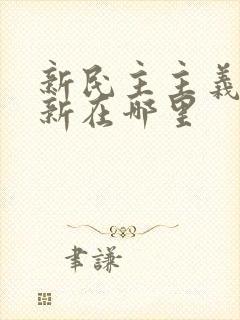 新民主主義
新在哪里
聿謙